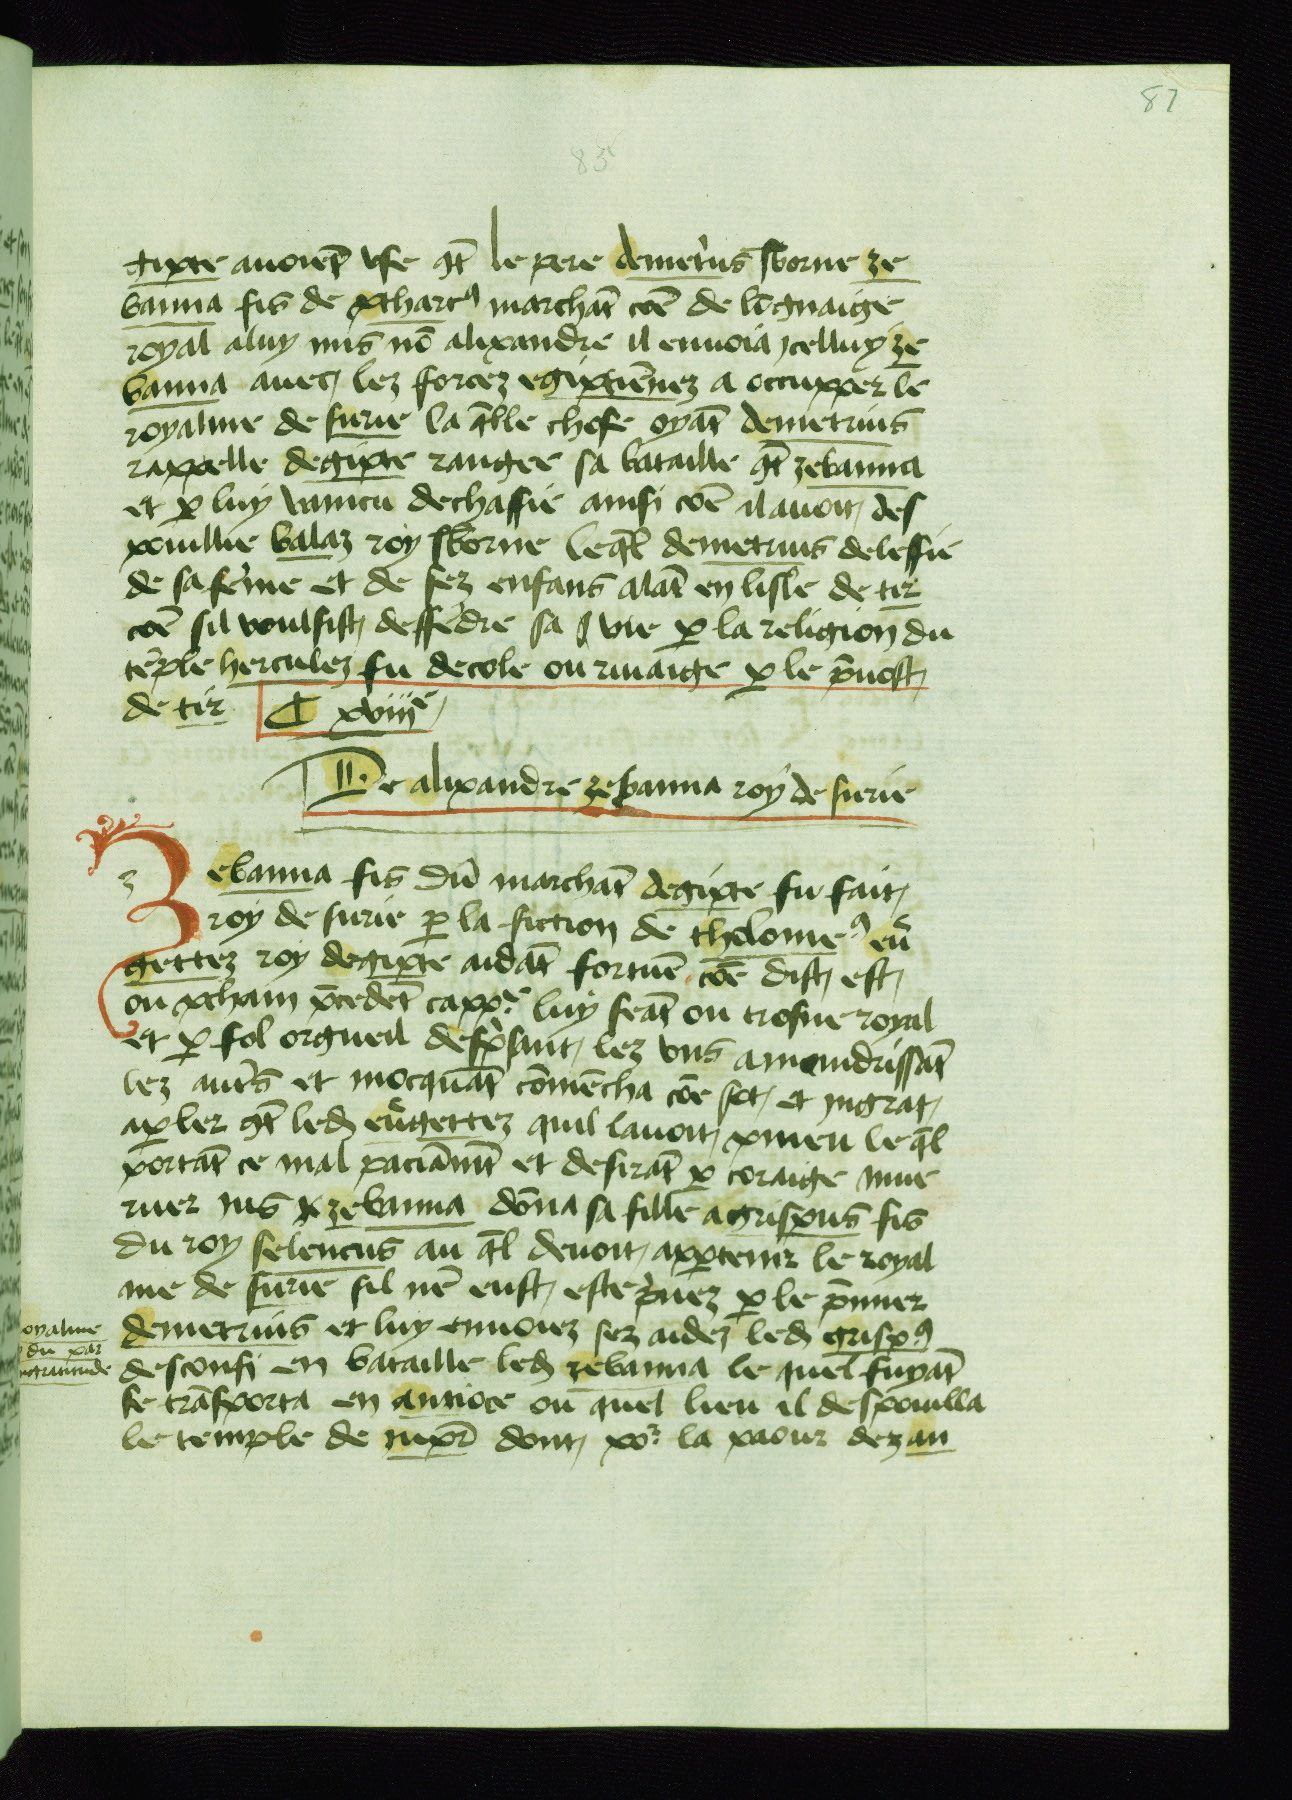 87
85
gipte auoiet use qt le pere demetrius suborne ze
banna fis de pthart9 marchat coe de lignaige
royal a luy mis no alixandre il enuoia jcelluy ze
banna auec lez forcez egiptiēnez a occupper le
royalme de surie la qlle chose oyāt demetrius
rappelle degipte rangee sa bataille qt zebanna
et p luy vaincu dechassie ainsi coe il auoit des
pouillie balaz roy suborne leql demetrius delessie
de sa fēme et de sez enfans alāt en lisle de tir
coe sil voulsist deffēdre sa vie p la religion du
tēple herculez fu decole ou riuaige p le puost
de tir C xviiie
De alixandre zebanna roy de surie
z
Zebanna fis du marchāt degipte fu fait
roy de surie p la fiction de tholome9 eu
gettez roy degipte aidāt fortune coe dist est
ou pchain pcedēt cappe luy seāt ou trosne royal
et p fol orgueil desprisant lez uns amoindrissāt
lez autrs et mocquāt cōmēcha coe sot et ingrat
apler qt led eugettez quil lauoit pmeu leql
portāt ce mal paciāmt et desirāt p coraige mue
ruer jus zebanna dōna sa fille a grispus fis
du roy seleucus au ql deuoit apptenir le royal
me de surie sil nē eust este priuez p le pmier
demetrius et luy enuoiez sez aidez led grisp9
desconfi en bataille led zebanna le quel fuyāt
se trāsporta en antioce ou quel lieu il despouilla
le temple de jupr dont por la paour dez an
oyalme
du par
ngratitude